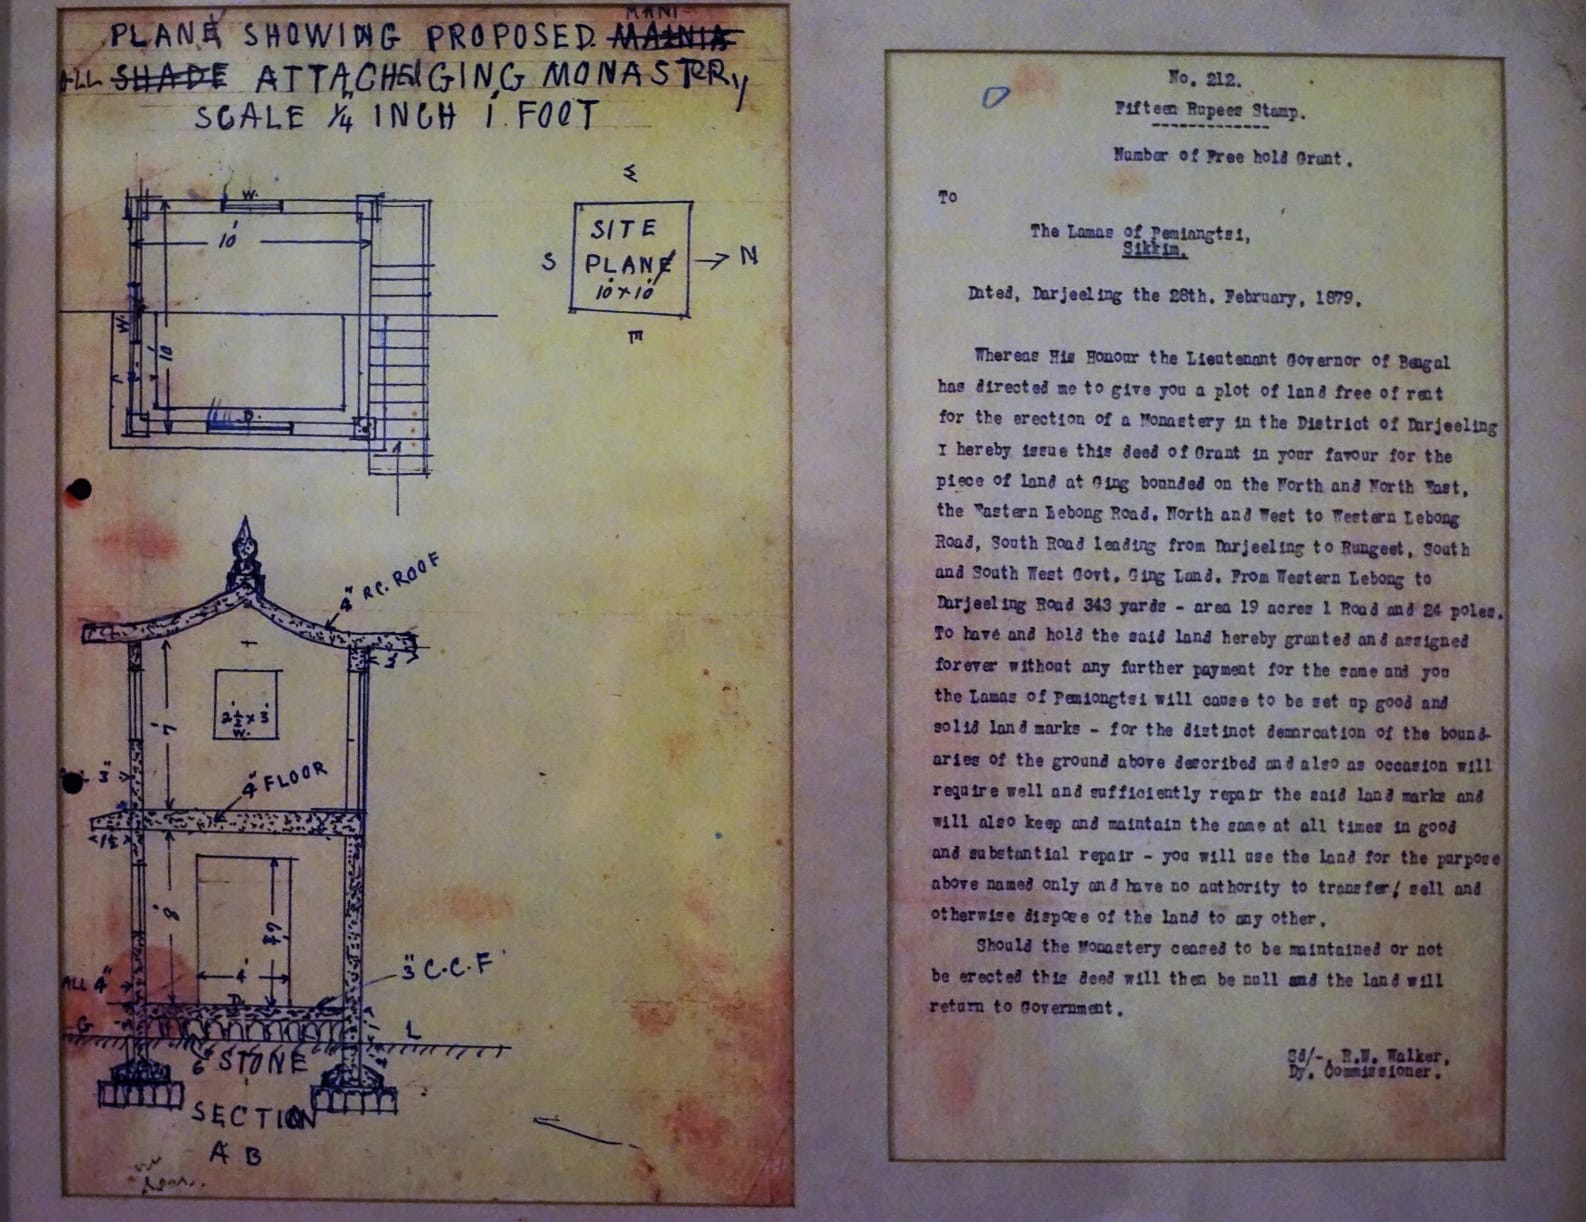 PLANE SHOWING PROPOSED MANI
ALL SHADE ATTACHEN GING MONASTRRY
SCALE 1/4" INCH 1 FOOT
W.
10'
W.
10'
D.
A
W
SITE
PLANE
10' x 10'
S
N
E
4" R.C. ROOF
3'
2½' x 3'
W.
7'
3"
4" FLOOR
1½'
8'
4'
ALL 4"
D
3" C.C.F
G
L
6" STONE
SECTION
A B
No. 212.
Fifteen Rupees Stamp.
-------------
Number of Free hold Grant.
To
The Lamas of Pemiangtsi,
Sikkim.
Dated, Darjeeling the 28th. February, 1879.
Whereas His Honour the Lieutenant Governor of Bengal
has directed me to give you a plot of land free of rent
for the erection of a Monastery in the District of Darjeeling
I hereby issue this deed of Grant in your favour for the
piece of land at Ging bounded on the North and North East,
the Eastern Lebong Road. North and West to Western Lebong
Road, South Road leading from Darjeeling to Rungeet, South
and South West Govt. Ging Land. From Western Lebong to
Darjeeling Road 343 yards - area 19 acres 1 Road and 24 poles.
To have and hold the said land hereby granted and assigned
forever without any further payment for the same and you
the Lamas of Pemiongtsi will cause to be set up good and
solid land marks - for the distinct demarcation of the bound-
aries of the ground above described and also as occasion will
require well and sufficiently repair the said land marks and
will also keep and maintain the same at all times in good
and substantial repair - you will use the land for the purpose
above named only and have no authority to transfer/ sell and
otherwise dispose of the land to any other.
Should the Monastery ceased to be maintained or not
be erected this deed will then be null and the land will
return to Government.
Sd/-, R.W. Walker,
Dy. Commissioner.